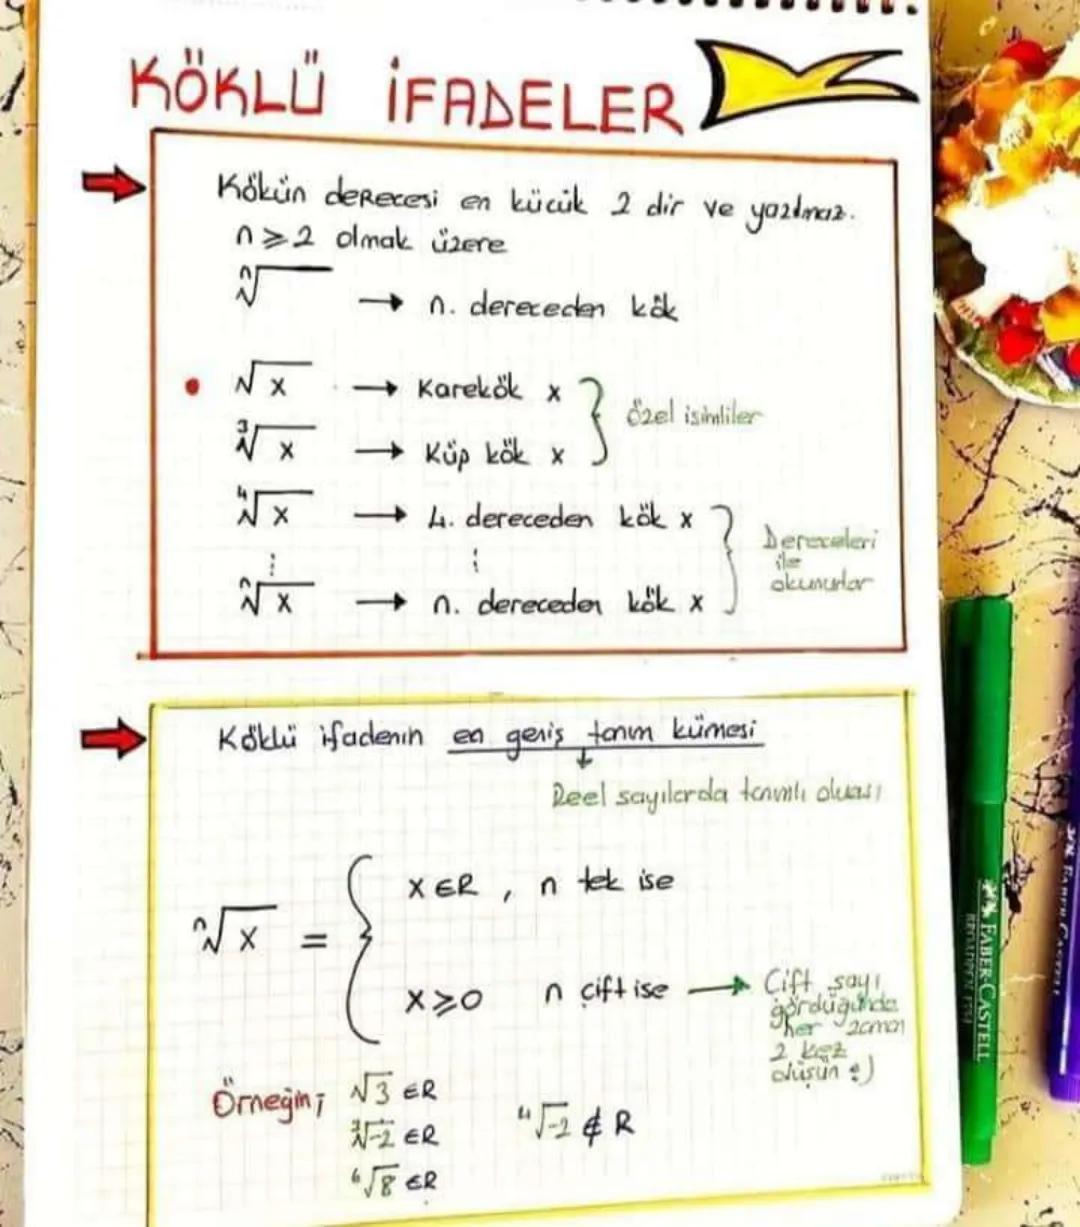 KÖKLÜ İFADELER
Kökün derecesi en kücük 2 dir ve yazılmaz.
n⩾2 olmak üzere
ⁿ√ → n. dereceden kök
• √x → Karekök x
özel isimliler
³√x → Küp kök x
⁴√x → 4. dereceden kök x
Dereceleri
ile
okunurlar
⋮ ⋮
ⁿ√x → n. dereceden kök x
Köklü ifadenin en geniş tanım kümesi
Reel sayılarda tanımlı olması
ⁿ√x = { x∈R , n tek ise
x⩾0 n çift ise → Çift sayı
gördüğünde
her zaman
2 kez
düşün :)
Örneğin; √3 ∈R
³√-2 ∈R ⁴√-2 ∉ R
⁶√8 ∈R
FABER-CASTELL